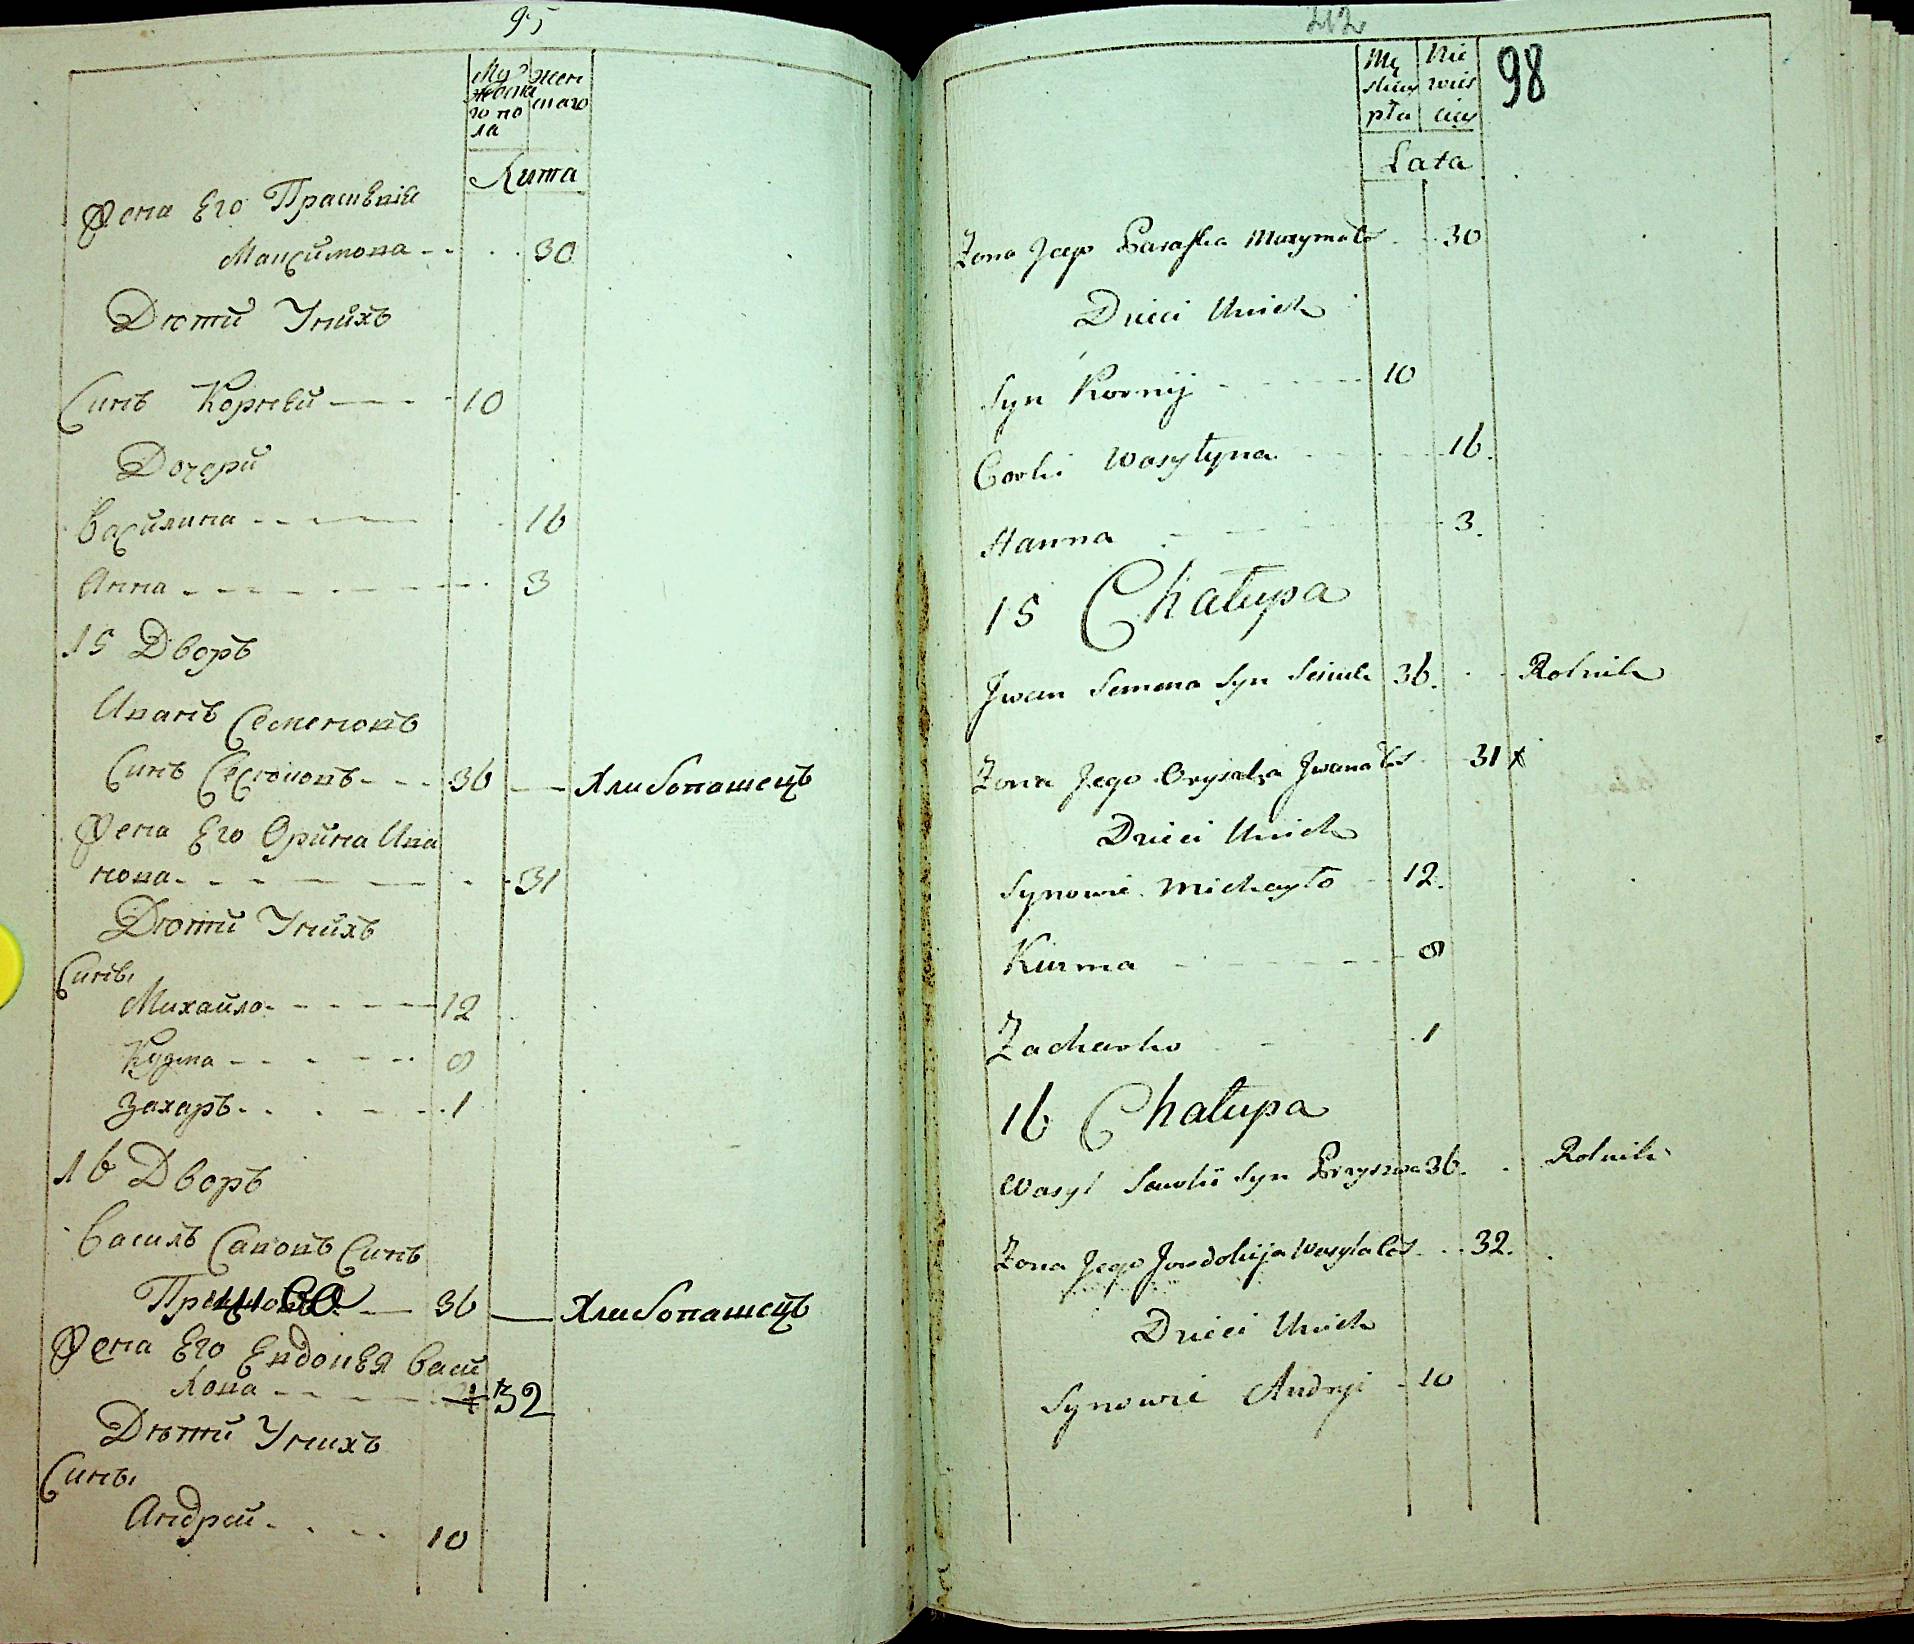 95
Му
жеска
го по
ла
жен
скаго
Лита
Жена Его Прасковія
Максимова 30
Дѣти Унихъ
Синъ Корней 10
Дочери
Василина 16
Анна 3
15 Дворъ
Иванъ Семеновъ
Синъ 36 Хлибопашецъ
Жена Его Орина Ива
нова 31
Дѣти Унихъ
Сины
Михайло 12
Кузма 8
Захаръ 1
16 Дворъ
Василь Савовъ Синъ
36 Хлибопашецъ
Жена Его Евдокія Васи
лова 32
Дѣти Унихъ
Сины
Андрей 10
212
98
Mę
skiey
płci
Nie
wieś
ciey
Lata
Zona Jego Paraska 30
Dzieci Unich
Syn Kornij 10
Corki Wasylyna 16.
Hanna 3.
15 Chałupa
Jwan Semena Syn 36. Rolnik
Zona Jego Oryszka 31
Dzieci Unich
Synowie Michayło 12.
Kuzma 8
Zacharko 1
16 Chałupa
Wasyl Sawki Syn 36. Rolnik
Zona Jego Jowdokija 32.
Dzieci Unich
Synowie Andryi 10